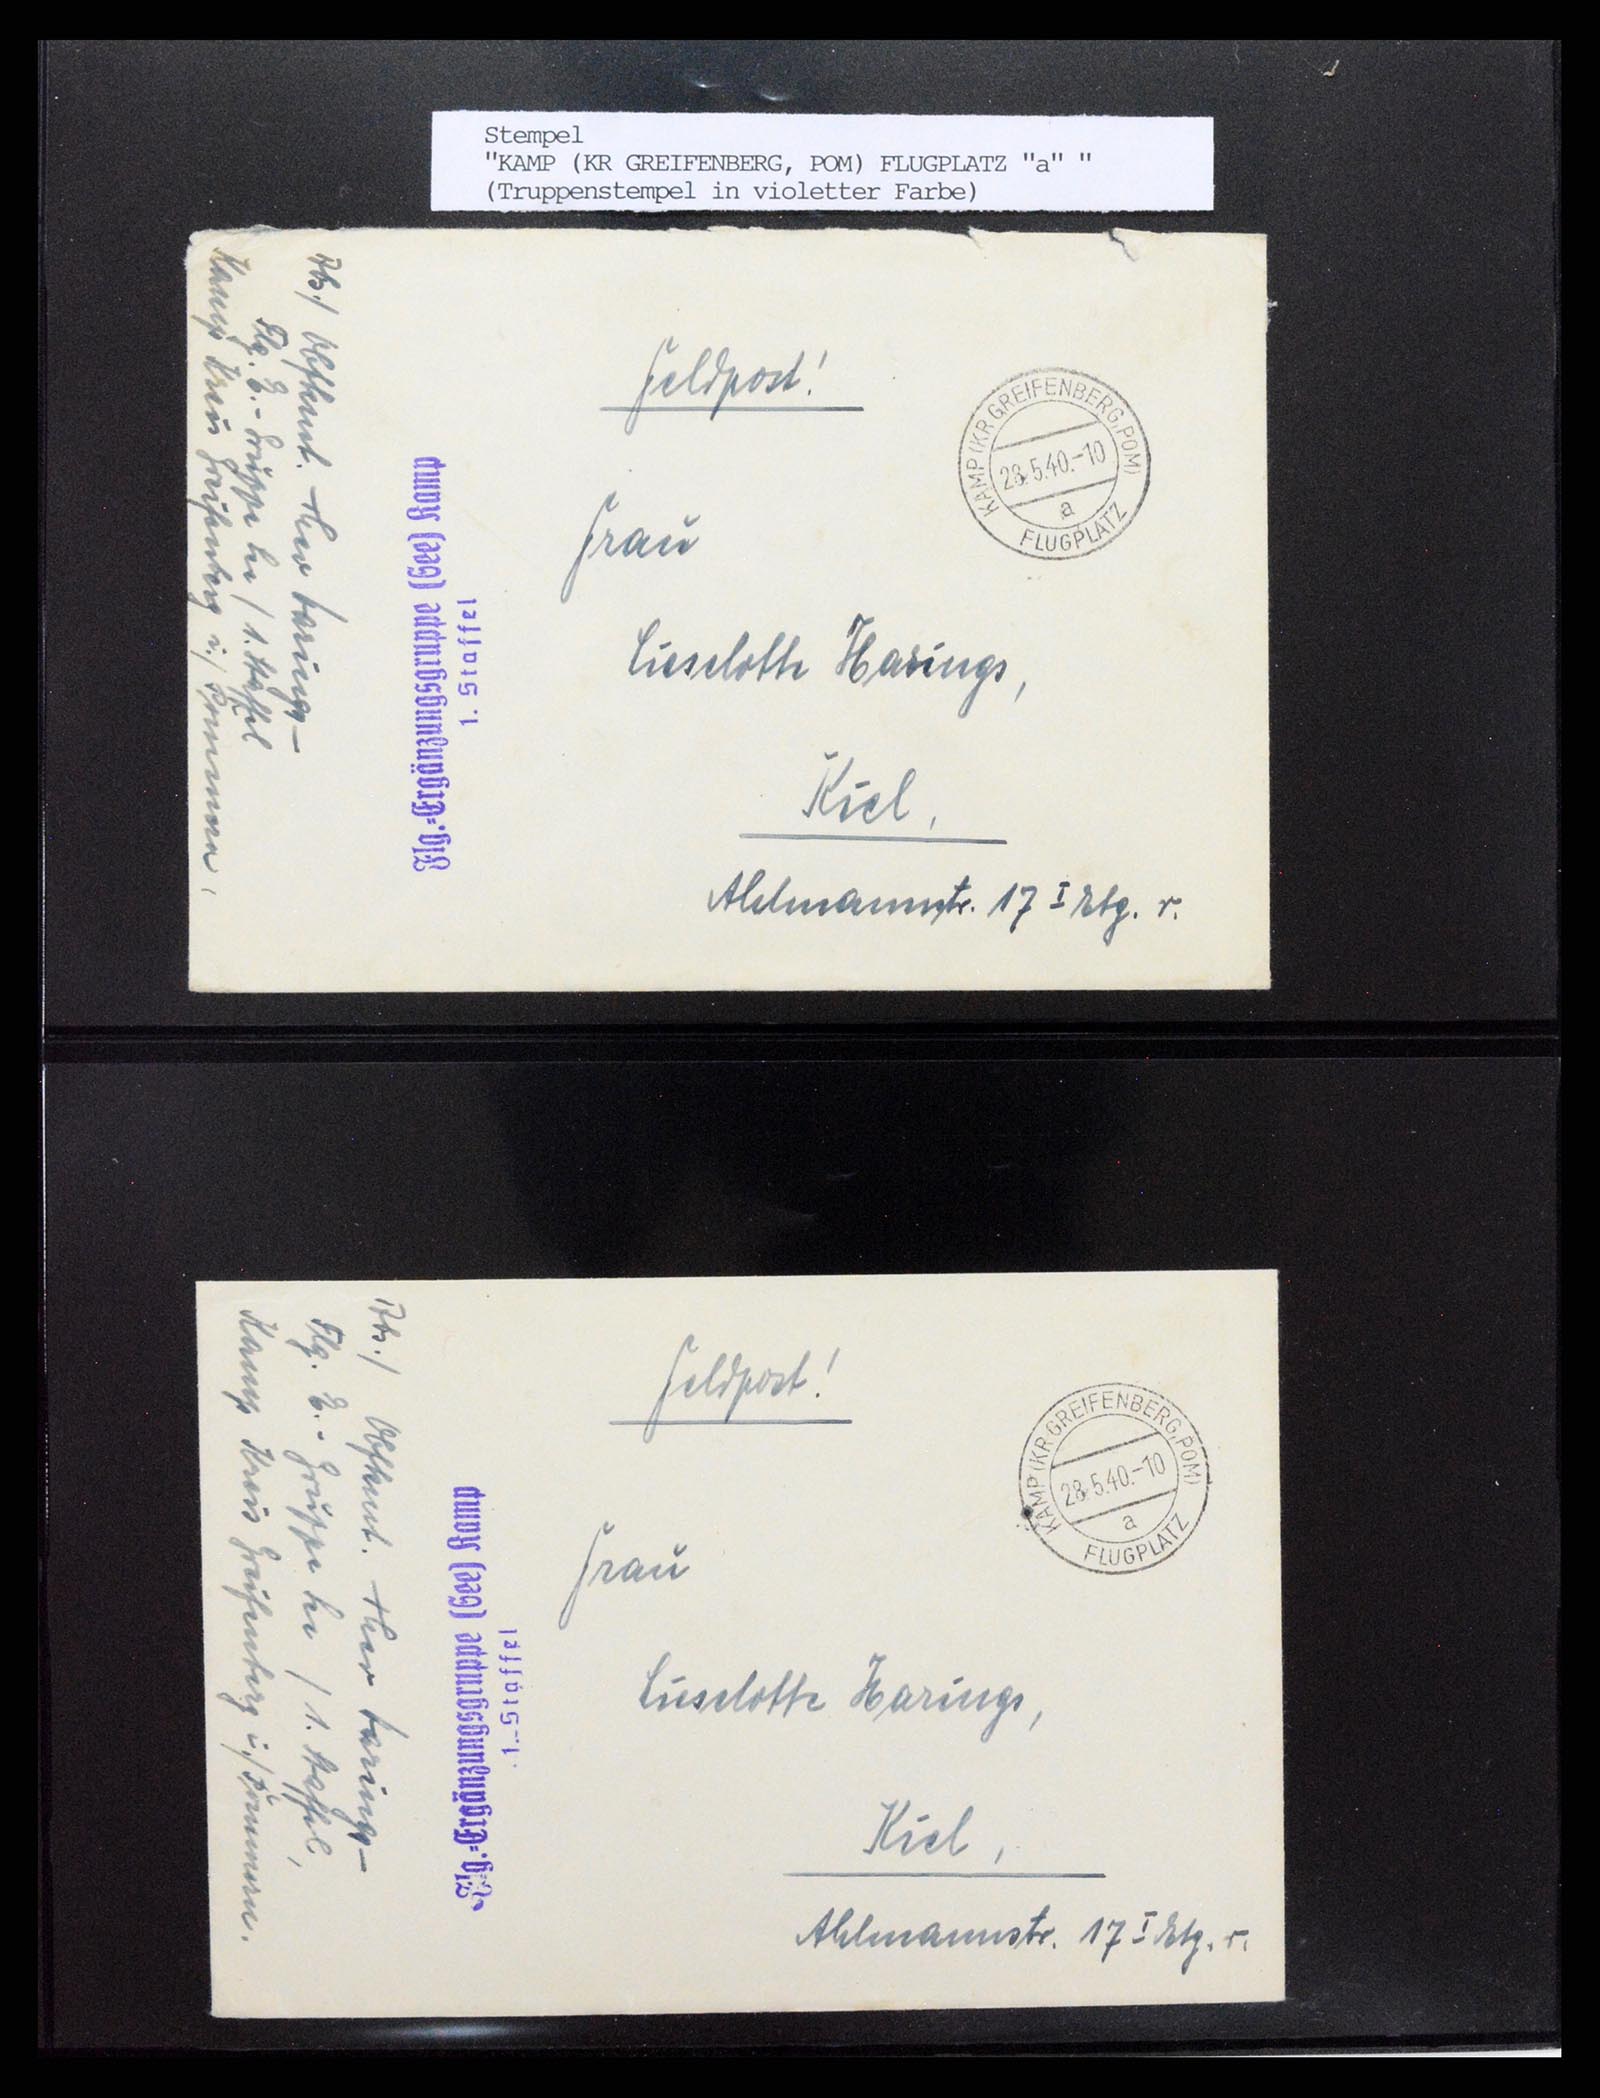 Stempel
"KAMP (KR GREIFENBERG, POM) FLUGPLATZ "a" "
(Truppenstempel in violetter Farbe)
Feldpost!
KAMP (KR. GREIFENBERG, POM)
28.5.40.-10
a
FLUGPLATZ
Frau
Lieselotte Harings,
Kiel,
Ahlmannstr. 17 I Etg. r.
1. Staffel
Flg.=Ergänzungsgruppe (See) Kamp
Abs./ Theo Harings
Flg. E.-Gruppe See / 1. Staffel
Kamp Kreis Greifenberg i./ Pommern.
Feldpost!
KAMP (KR. GREIFENBERG, POM)
28.5.40.-10
a
FLUGPLATZ
Frau
Lieselotte Harings,
Kiel,
Ahlmannstr. 17 I Etg. r.
1. Staffel
Flg.=Ergänzungsgruppe (See) Kamp
Abs./ Theo Harings
Flg. E.-Gruppe See / 1. Staffel,
Kamp Kreis Greifenberg i./ Pommern.